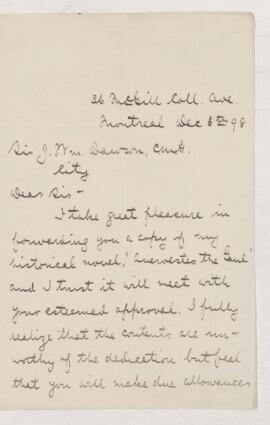 36 McGill Coll. Ave.
Montreal Dec 6th 98
Sir J. Wm. Dawson, C.M.G.
City
Dear Sir -
I take great pleasure in
forwarding you a copy of my
historical novel, " the Gaul"
and I trust it will meet with
your esteemed approval. I fully
realize that the contents are un-
worthy of the dedication but feel
that you will make due allowances